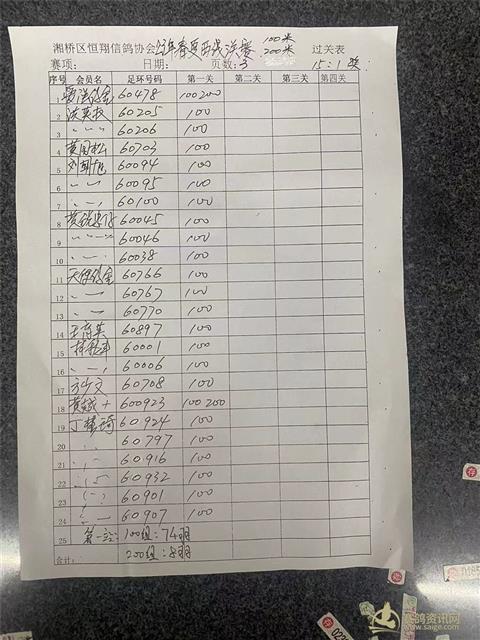 湘桥区恒翔信鸽协会22年春夏西线决赛 100米 200米 过关表
赛项: 日期: 页数:3 15:1奖
序号 会员名 足环号码 第一关 第二关 第三关 第四关
1 60478 100 200
2 60205 100
3 〃 60206 100
4 黄国松 60703 100
5 刘朝旭 60094 100
6 〃 60095 100
7 〃 60100 100
8 60045 100
9 〃 60046 100
10 〃 60038 100
11 60766 100
12 〃 60767 100
13 〃 60770 100
14 60897 100
15 60001 100
16 〃 60006 100
17 方少文 60708 100
18 600923 100 200
19 60924 100
20 60797 100
21 60916 100
22 60932 100
23 60901 100
24 60907 100
25 第一关: 100组:74羽
合计: 200组:8羽
赛鸽资讯网
www.saige.com